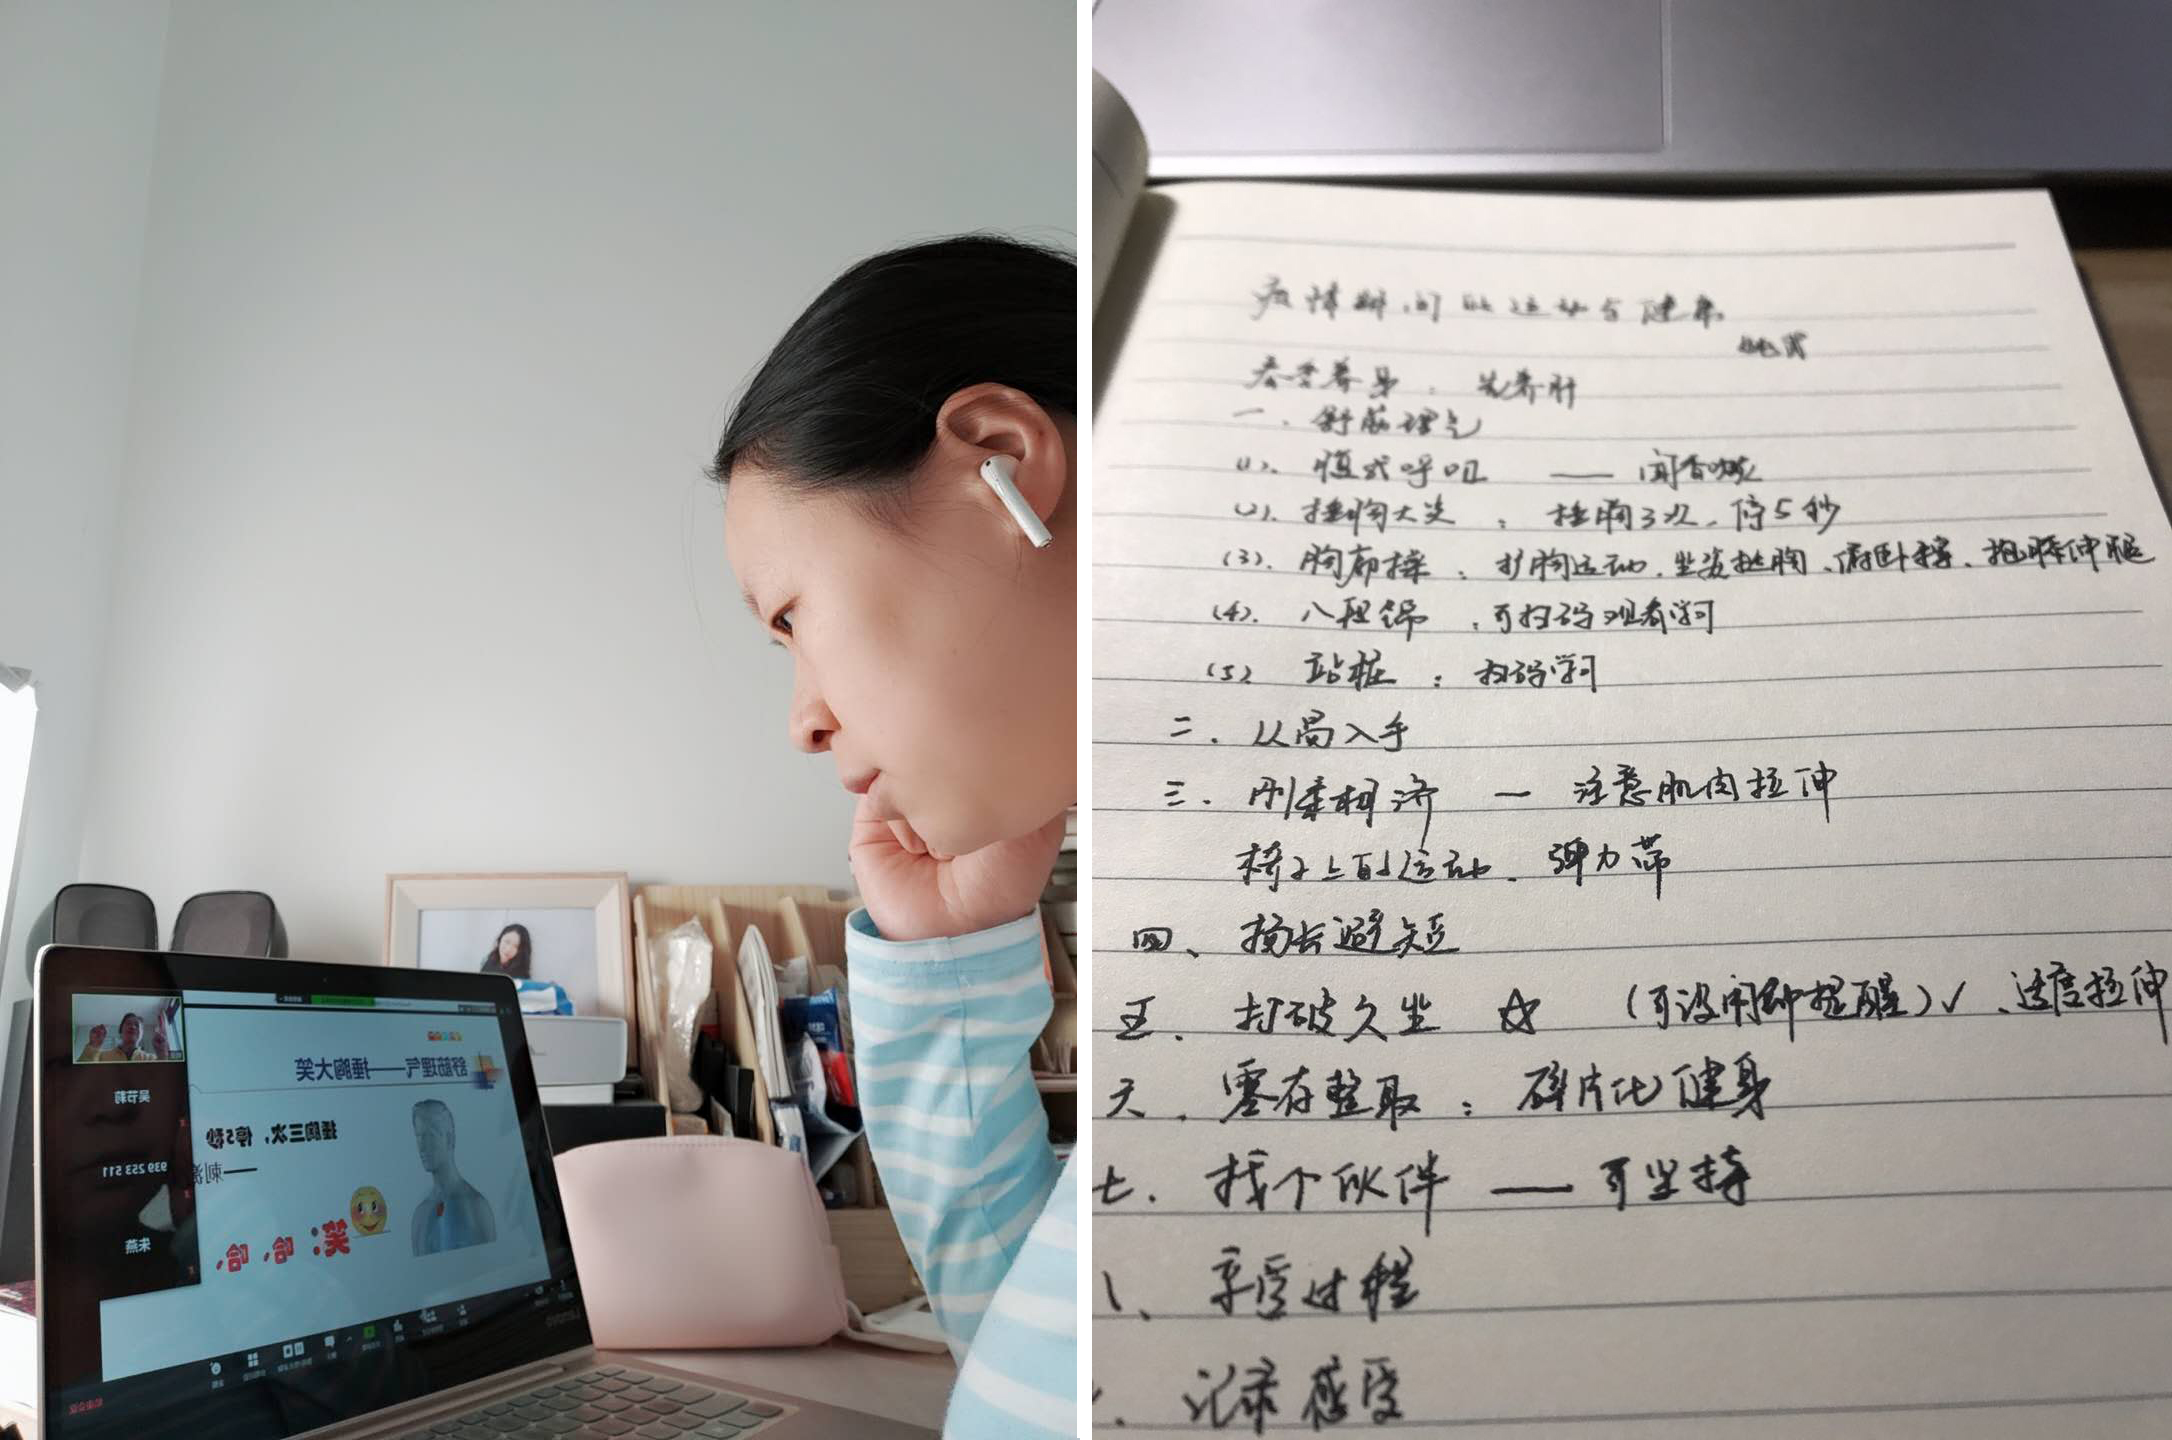 舒筋理气——捶胸大笑
捶胸三次，停5秒
——刺激
笑：哈，哈，哈，
吴节莉
939 253 511
朱燕
Lenovo
疫情期间的运动与健康
春季养身：先养肝
一、舒筋理气
(1). 腹式呼吸 —— 闻香
(2). 捶胸大笑：捶胸3次，停5秒
(3). 胸廓操：扩胸运动、坐姿扩胸、俯卧撑、抱膝伸腿
(4). 八段锦，可扫码观看学习
(5) 站桩：扫码学习
二、从局入手
三、刚柔相济 — 注意肌肉拉伸
椅子上的运动、弹力带
四、扬长避短
五、打破久坐 ☆ (可设闹钟提醒)✓、适度拉伸
六、零存整取：碎片化健身
七、找个伙伴 —— 可坚持
八、享受过程
、记录感受